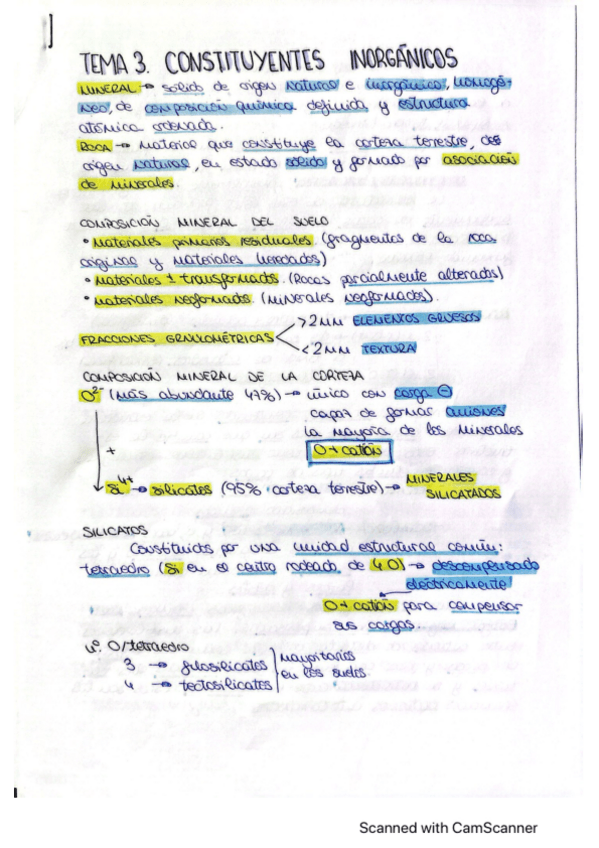 TEMA 3. CONSTITUYENTES INORGÁNICOS
MINERAL → sólido de origen natural e inorgánico, homogé-
neo, de composición química definida y estructura
atómica ordenada.
ROCA → Material que constituye la corteza terrestre, de
origen natural, en estado sólido y formado por asociación
de minerales.
COMPOSICIÓN MINERAL DEL SUELO
• Materiales primarios residuales. (fragmentos de la roca
original y materiales heredados)
• Materiales ± transformados. (Rocas parcialmente alteradas)
• Materiales neoformados. (Minerales neoformados).
FRACCIONES GRANULOMÉTRICAS
>2MM ELEMENTOS GRUESOS
<2MM TEXTURA
COMPOSICIÓN MINERAL DE LA CORTEZA
O²⁻ (más abundante 47%) → único con carga ⊖
capaz de formar aniones
la mayoría de los minerales
+
O + catión
Si⁴⁺ → silicatos (95% corteza terrestre) → MINERALES
SILICATADOS
SILICATOS
Constituidos por una unidad estructural común:
tetraedro (Si en el centro rodeado de 4 O) → descompensado
eléctricamente
O + catión para compensar
sus cargas
nº O/tetraedro
3 → filosilicatos
4 → tectosilicatos
Mayoritarios
en los suelos
Scanned with CamScanner